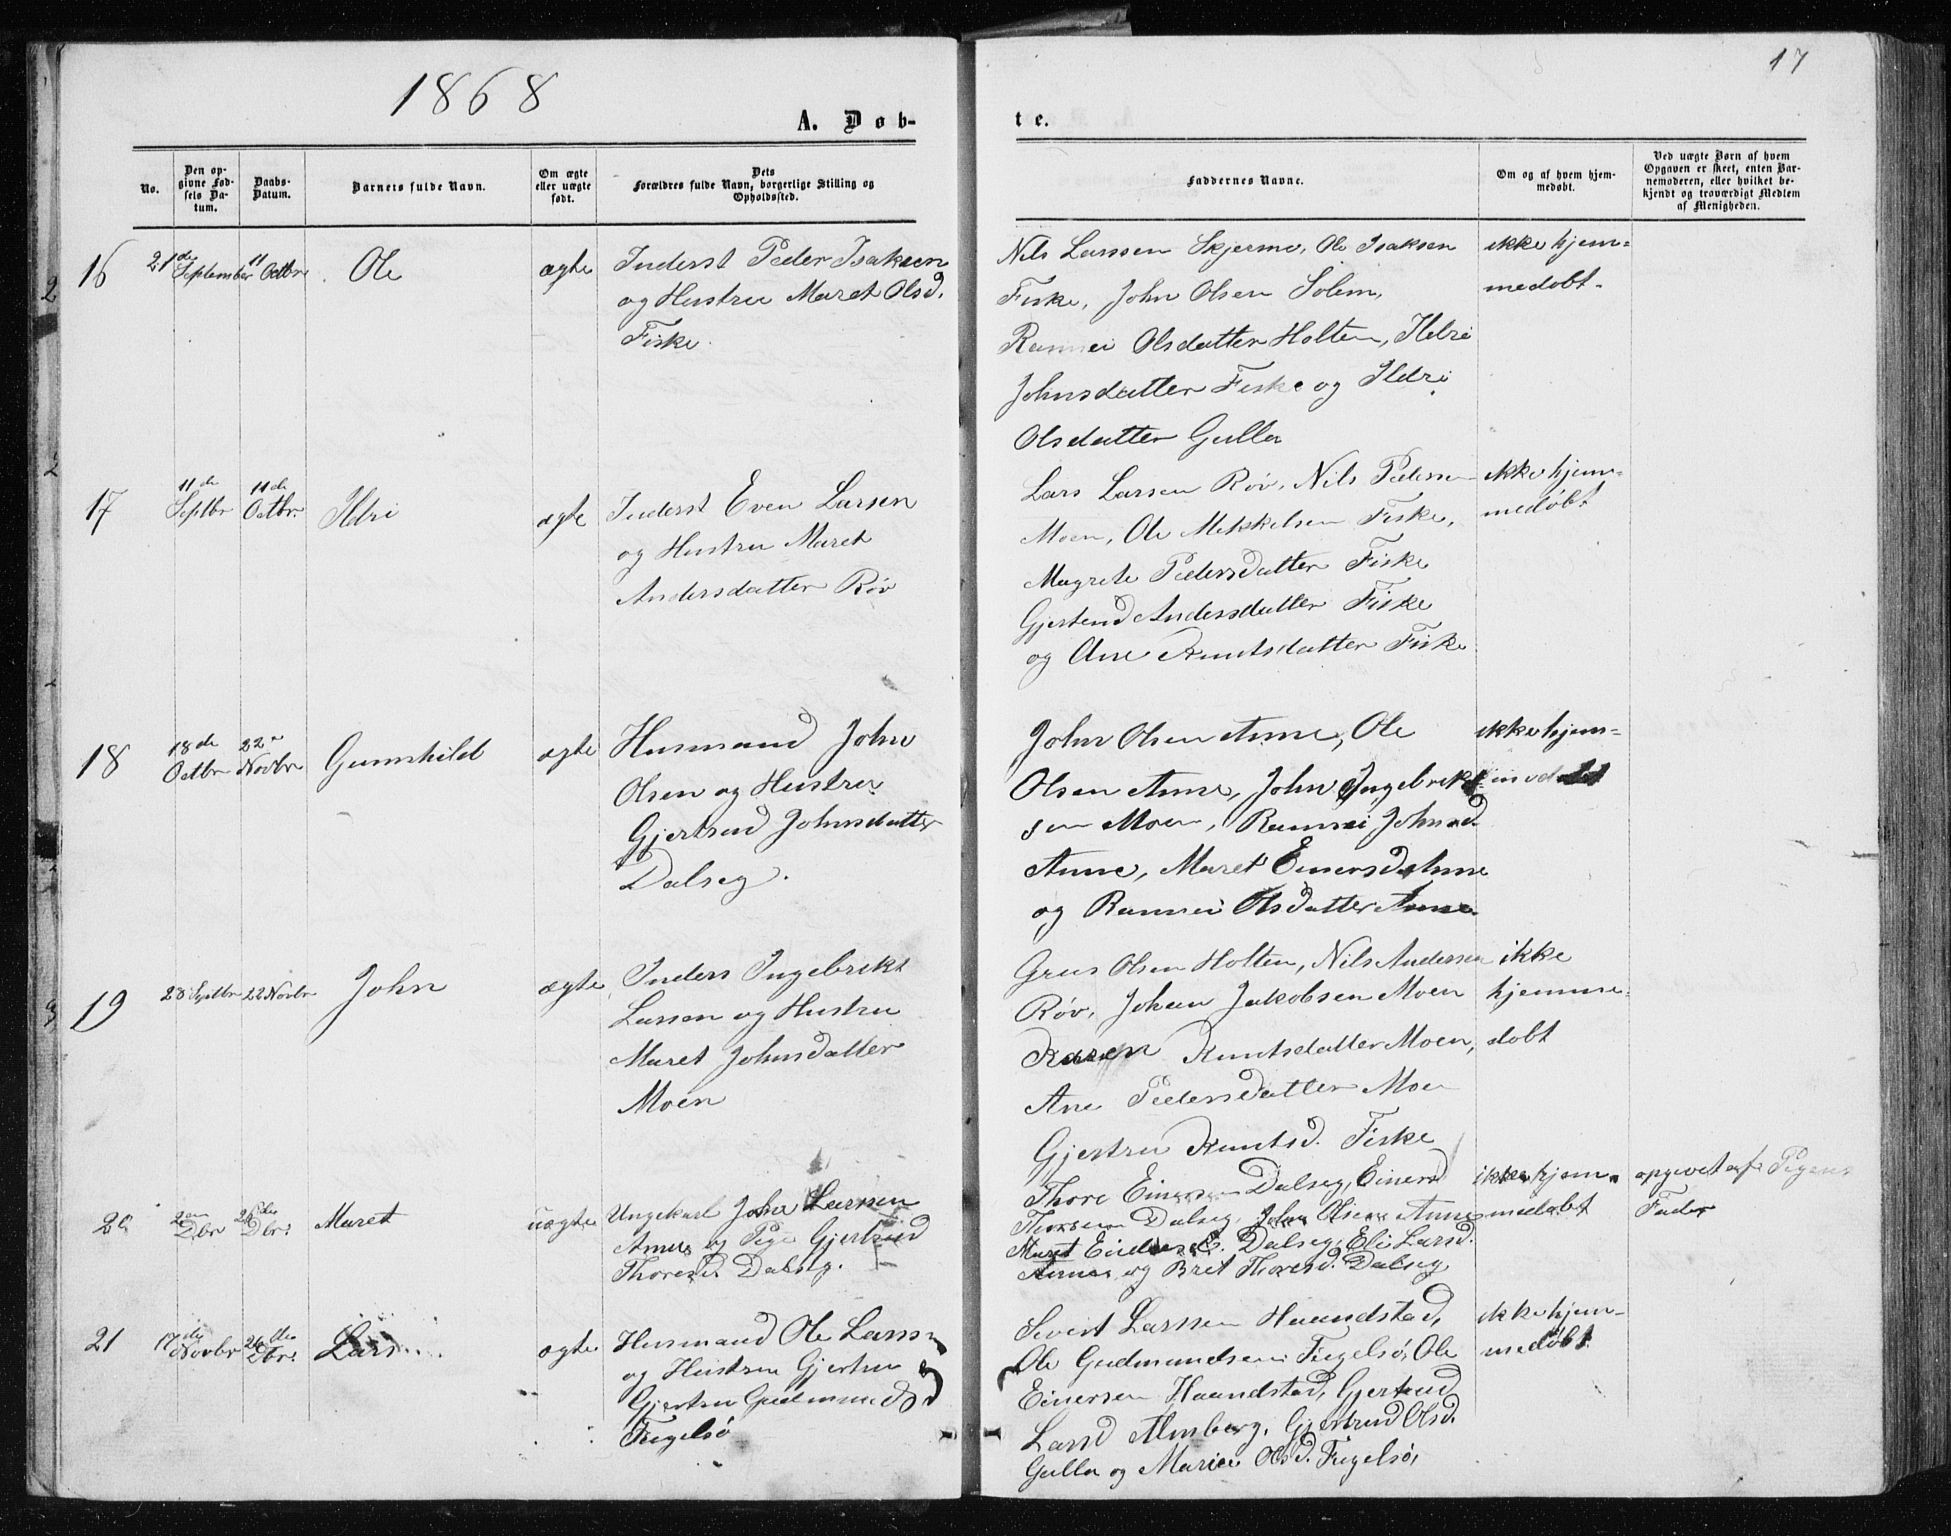 1868
17
A. Døb-
te.
No.
Den op-
givne Fød-
sels Da-
tum.
Daabs-
Datum.
Barnets fulde Navn.
Om ægte
eller uægte
født.
Dets
Forældres fulde Navn, borgerlige Stilling og
Opholdssted.
Faddernes Navne.
Om og af hvem hjem-
medøbt.
Ved uægte Børn af hvem
Opgaven er skeet, enten Bar-
nemoderen, eller hvilket be-
kjendt og troværdigt Medlem
af Menigheden.
16
21de
September
11
Octbr
Ole
ægte
Inderst Peder Isaksen
og Hustru Maret Olsd.
Fiske
Nils Larssen Skjermo, Ole Isaksen
Fiske, John Olsen Solem,
Rannei Olsdatter Holten, Ildri
Johnsdatter Fiske og Ildri
Olsdatter Gulla
ikke hjem=
medøbt.
17
11de
Septbr
11de
Octbr.
Ildri
ægte
Inderst Even Larsen
og Hustru Maret
Andersdatter Røv
Lars Larsen Røv, Nils Pedersen
Moen, Ole Mekkelsen Fiske,
Magrete Pedersdatter Fiske
Gjertrud Andersdatter Fiske
og Ane Knutsdatter Fiske
ikke hjem=
medøbt
18
18de
Octbr
22
Novbr
Gunnhild
ægte
Husmand John
Olsen og Hustru
Gjertrud Johnsdatter
Dalseg.
John Olsen Anne, Ole
Olsen Anne, John Ingebrikt
sen Moen, Rannei Johnsd.
Anne, Maret Einersd Anne
og Rannei Olsdatter Anne.
ikke hjem=
medøbt
19
28 Septbr
22 Novbr
John
ægte
Inders Ingebrikt
Larsen og Hustru
Maret Johnsdatter
Moen
Grus Olsen Holten, Nils Andersen
Røv, Johan Jakobsen Moen
Karen Knutsdatter Moen,
Ane Pedersdatter Moen
Gjertru Knutsd. Fiske
ikke
hjemme=
døbt
20
2en
Dbr
26de
Dbr.
Maret
uægte
Ungekarl John Larssen
Anne og Pige Gjertrud
Thoresd. Dalseg.
Thore Einersen Dalseg, Einer
Thoresen Dalseg, John Olsen Anne
Maret Einersd. Dalseg, Eli Larsd.
Anne og Bret Thoresd. Dalseg
ikke hjem=
medøbt
opgivet af Pigens
Fader
21
17de
Novbr
26de
Dbr.
Lars
ægte
Husmand Ole Larss
og Hustru Gjertru
Gjertru Gudmundsd
Fugelsø
Sivert Larssen Haandstad,
Ole Gudmundsen Fugelsø, Ole
Einersen Haandstad, Gjertrud
Larsd Almberg, Gjertrud Olsd.
Gulla og Marie Olsd. Fugelsø,
ikke hjem=
medøbt.